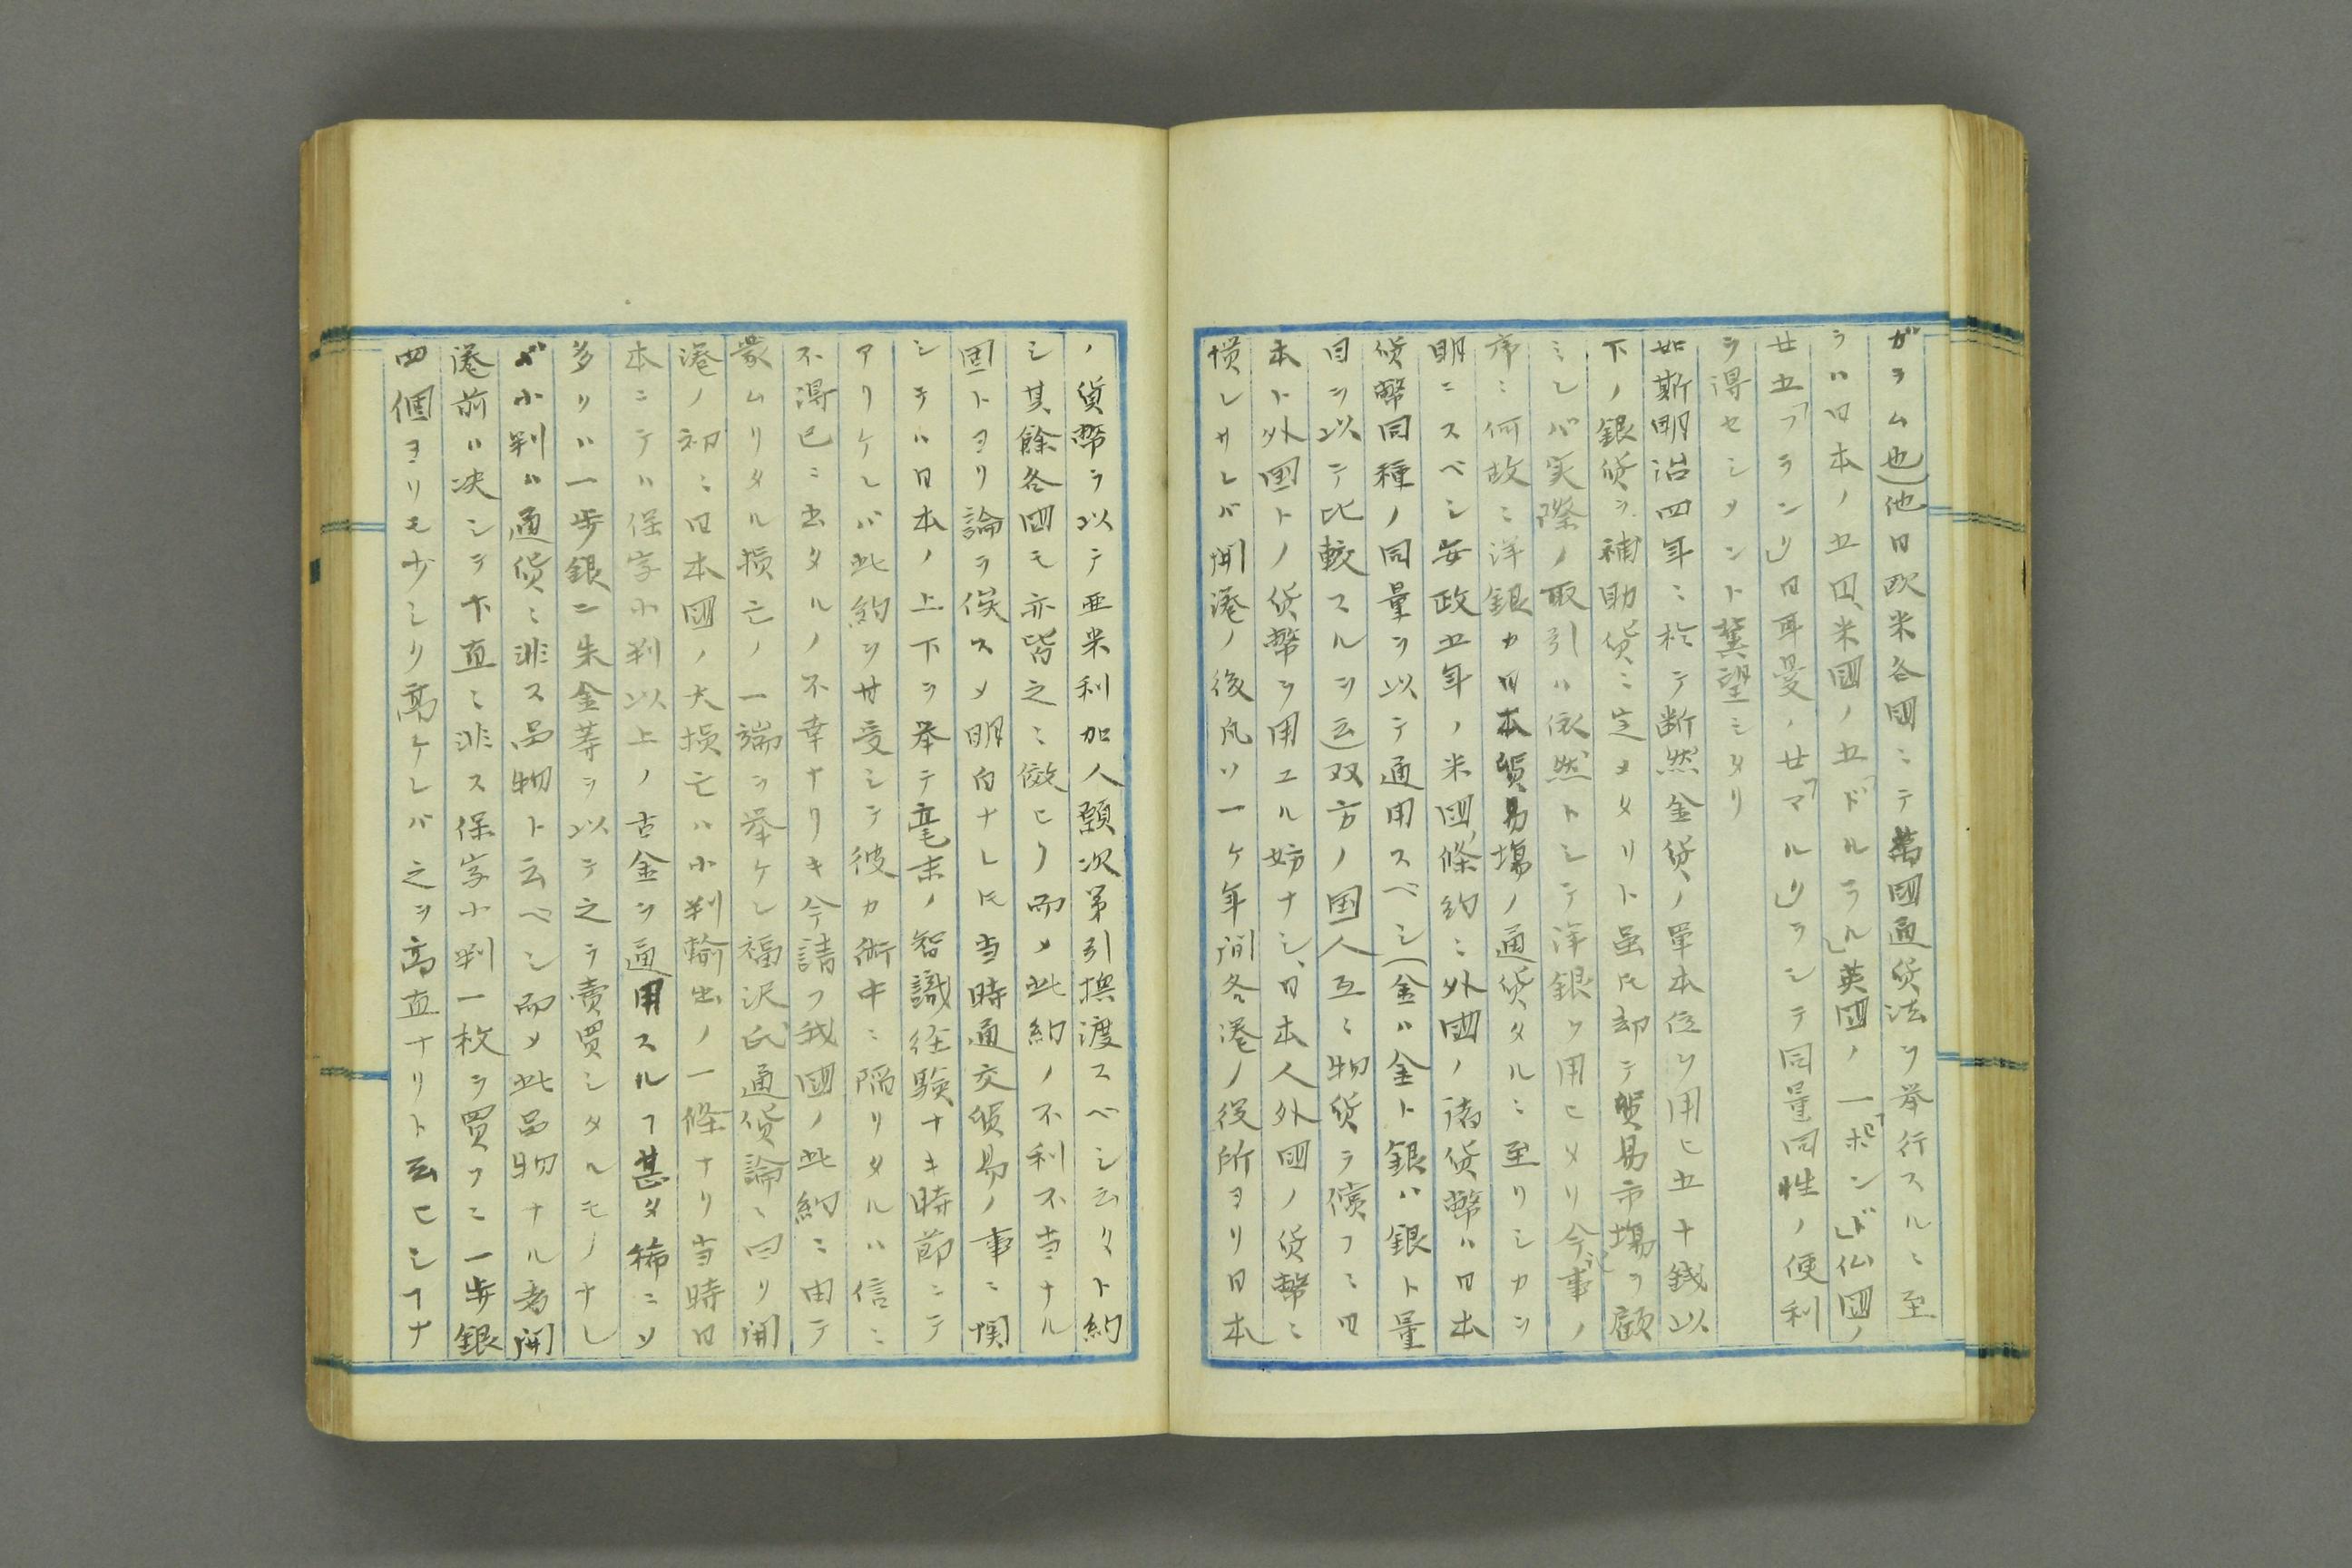 ガヲム也)他日欧米各国ニテ萬國通貨法ヲ挙行スルニ至
ラハ日本ノ五円、米國ノ五「ドルラル」英國ノ一「ポンド」仏國ノ
廿五「フランク」日耳曼ノ廿「マルク」ヲシテ同量同性ノ便利
ヲ得セシメント冀望シタリ
如斯明治四年ニ於テ断然金貨ノ単本位ヲ用ヒ五十銭以
下ノ銀貨ヲ補助貨ニ定メタリト虽𪜈却テ貿易市塲ヲ顧
ミレバ実際ノ取引ハ依然トシテ洋銀ヲ用ヒタリ今事ノ
序ニ何故ニ洋銀カ日本貿易塲ノ通貨タルニ至リシカヲ
明ニスベシ安政五年ノ米國條約ニ外國ノ諸貨幣ハ日本
貨幣同種ノ同量ヲ以テ通用スベシ(金ハ金ト銀ハ銀ト量
目ヲ以テ比較スルヲ云)双方ノ国人互ニ物貨ヲ償フニ日
本ト外国トノ貨幣ヲ用ユル妨ナシ、日本人外國ノ貨幣ニ
慣レサレバ開港ノ後凡ソ一ヶ年間各港ノ役所ヨリ日本
ノ貨幣ヲ以テ亜米利加人願次第引換渡スベシ云々ト約
シ其餘各国モ亦皆之ニ倣ヒリ而メ此約ノ不利不当ナル
固トヨリ論ヲ俟スメ明白ナレ𪜈当時通交貿易ノ事ニ関
シテハ日本ノ上下ヲ挙テ毫末ノ智識経験ナキ時節ニテ
アリケレバ此約ヲ甘受シテ彼カ術中ニ陥リタルハ信ニ
不得已ニ出タルノ不幸ナリキ今請フ我國ノ此約ニ由テ
蒙ムリタル損亡ノ一端ヲ挙ケン福沢氏通貨論ニ曰リ開
港ノ初ニ日本國ノ大損亡ハ小判輸出ノ一條ナリ当時日
本ニテハ保字小判以上ノ古金ヲ通用スルヿ甚タ稀ニソ
多リハ一歩銀二朱金等ヲ以テ之ヲ賣買シタルモノナレ
バ小判ハ通貨ニ非ス品物ト云ベシ而メ此品物ナル者開
港前ハ决シテ下直ニ非ス保字小判一枚ヲ買フニ一歩銀
四個ヨリモ少シク高ケレバ之ヲ高直ナリト云ヒシヿナ